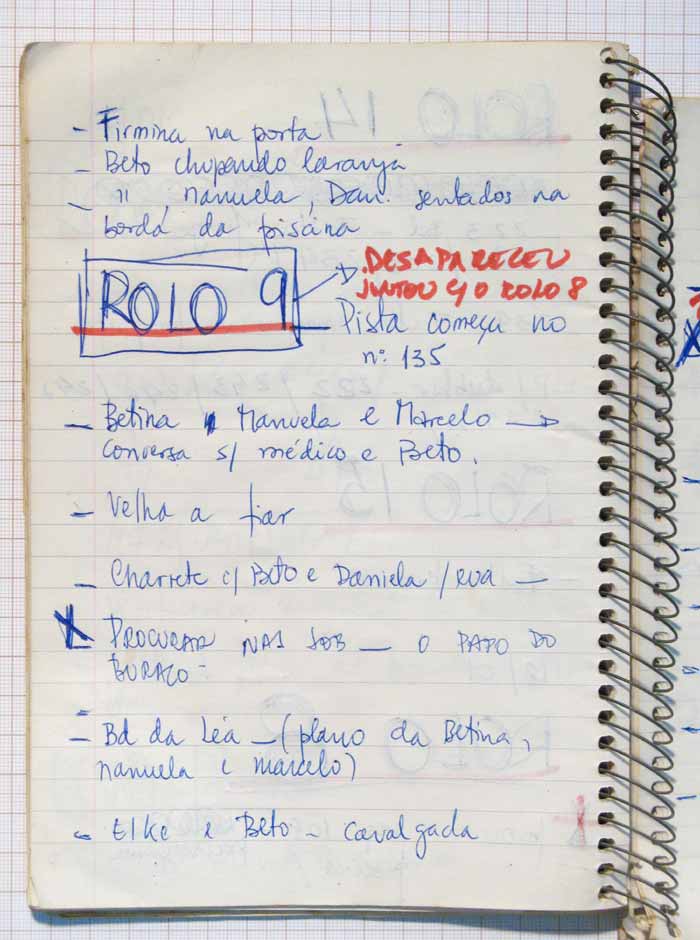 - Firmina na porta
- Beto chupando laranja
- " , Manuela, Dan. sentados na
borda da piscina
ROLO 9
DESAPARECEU
JUNTOU C/ O ROLO 8
Pista começa no
nº 135
- Betina Manuela e Marcelo
conversa s/ médico e Beto.
- Velha a fiar
- Charrete c/ Beto e Daniela / rua -
X PROCURAR NAS SOB - O PAPO DO
BURACO -
- Bd da Léa - (plano da Betina,
Manuela e Marcelo)
- Elke e Beto - cavalgada